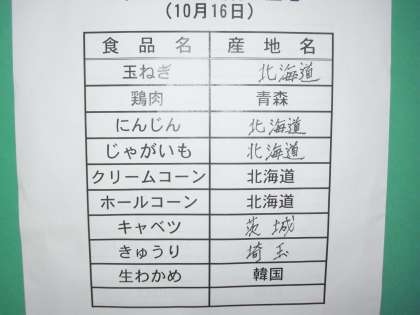 (10月16日)
食品名 産地名
玉ねぎ 北海道
鶏肉 青森
にんじん 北海道
じゃがいも 北海道
クリームコーン 北海道
ホールコーン 北海道
キャベツ 茨城
きゅうり 埼玉
生わかめ 韓国